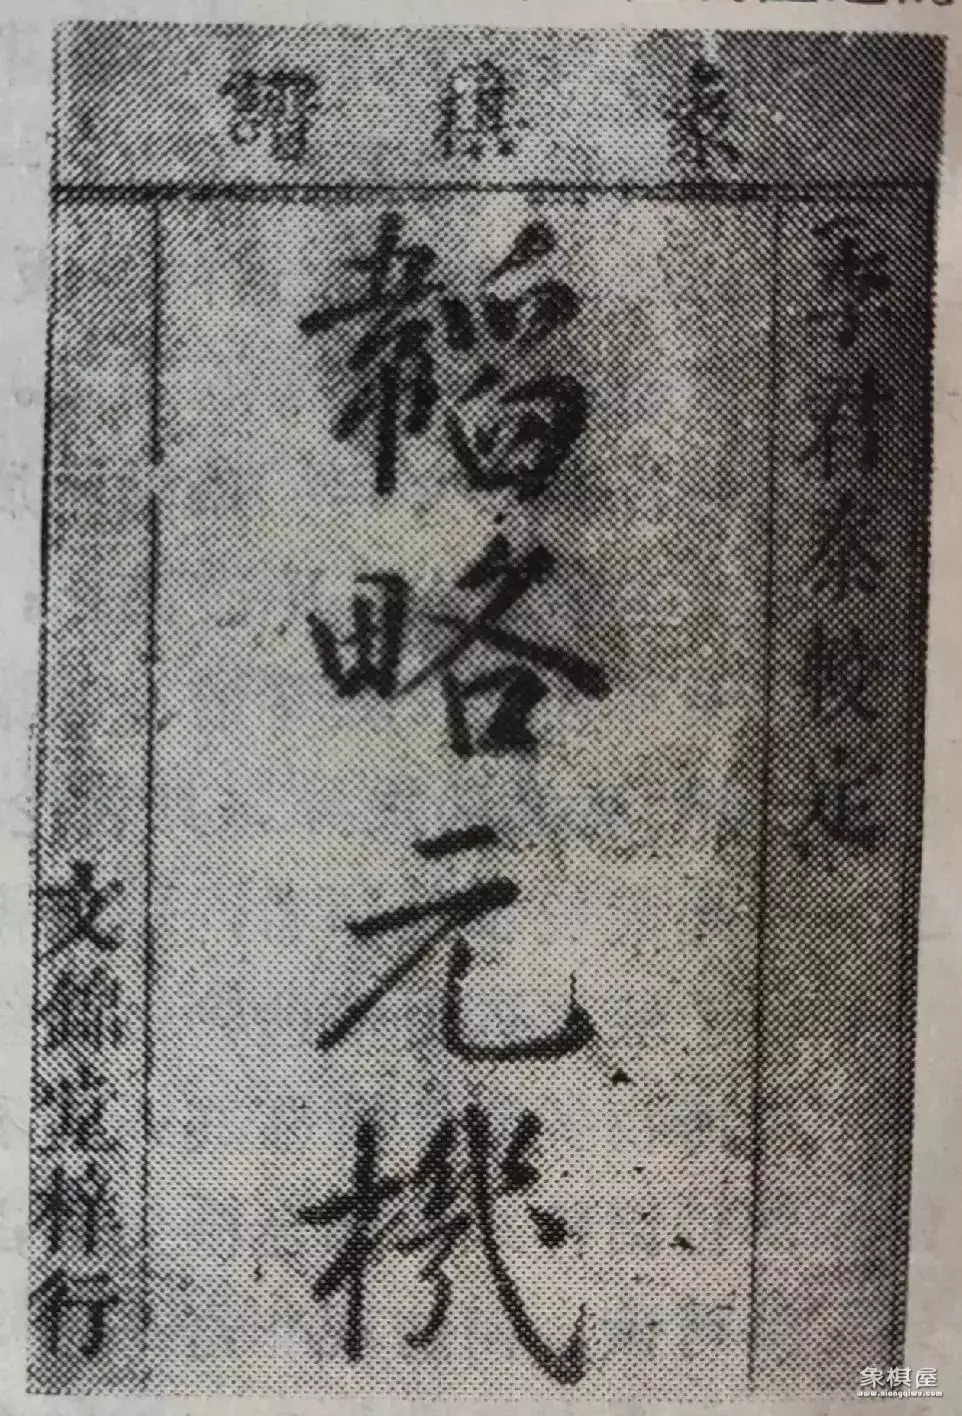 象棋譜
較定
韜略元機
文錦堂梓行
象棋屋
www.xiangqiwu.com